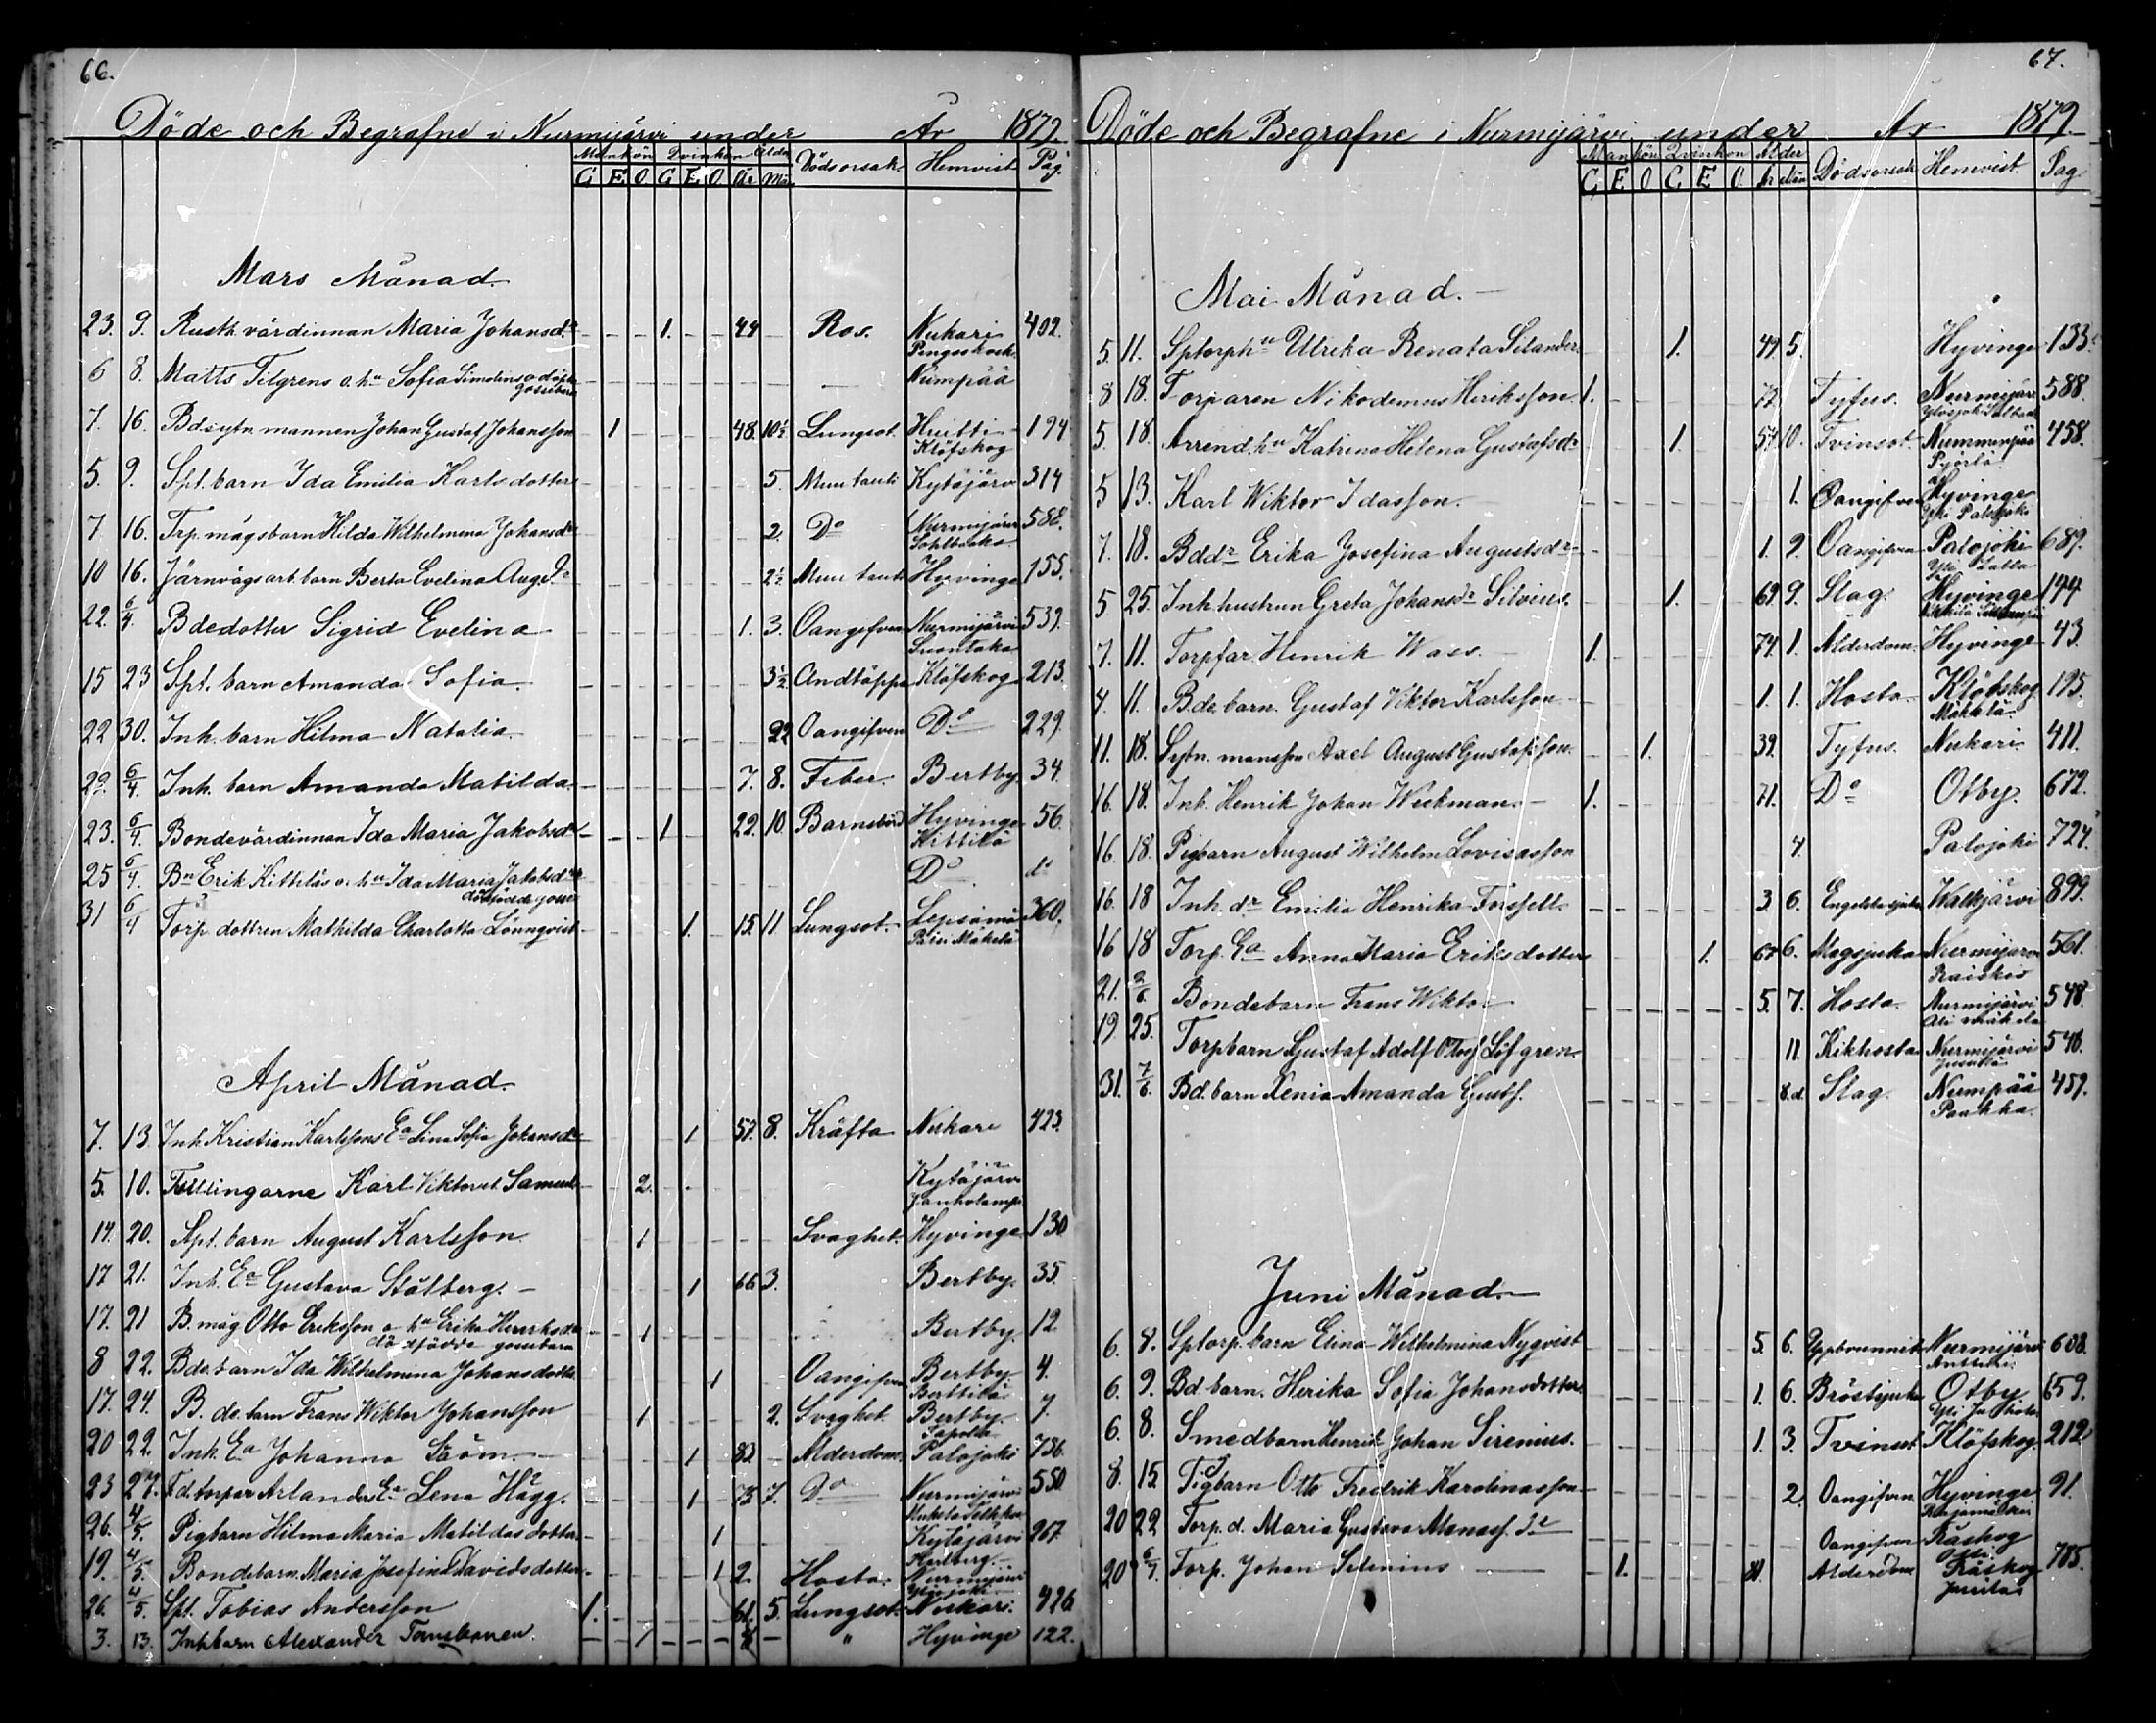 66.
Döde och Begrafne i Nurmijärvi under År 1879.
Mankön Qvinkön Ålder Dödsorsak Hemvist Pag.
G E O G E O År Mån
Mars Månad.
23. 9. Rusth. värdinnan Maria Johansdr 1. 44 Ros. Nukari 402.
6 8. Matts Tilgrens o. hu Sofia odöpta gossebarn Numpää
7. 16. Bdesytn. mannen Johan Gustaf Johansson 1 48. 10½ Lungsot. Huitti Klöfskog 194
5. 9. Spt. barn Ida Emilia Karlsdotter 5. Muu tauti Kytäjärvi 314
7 16. Trp. mågsbarn Hilda Wilhelmina Johansdr 2. Do Nurmijärvi 588.
10 16. Järnvägsarb. barn Berta Evelina Aug. 2½ Muu tauti Hyvinge 155.
22. 6/4. Bdedotter Sigrid Evelina 1. 3. Oangifven Nurmijärvi 539.
15 23 Spt. barn Amanda Sofia. 3½ Andtäppa Klöfskog 213.
22 30. Inh. barn Hilma Natalia. 22 Oangifven Do 229.
22. 6/4. Inh. barn Amanda Matilda 7. 8. Feber. Bertby 34.
23. 6/4. Bondevärdinnan Ida Maria Jakobsdr 1 22. 10. Barnsbörd Hyvinge Kittilä 56.
25 6/4. Bn Erik Kittiläs o. hu Ida Maria Jakobsdr dödfödde gosse Do do
31 6/4 Torp dottren Mathilda Charlotta Lönnqvist 1. 15. 11 Lungsot. Lepsämä Mäkelä 360.
April Månad.
7. 13. Inh. Kristian Karlssons Ea Lina Sofia Johansdr 1 57. 8. Kräfta Nukari 423.
5. 10. Tvillingarne Karl Viktor et Samuel 2. Kytäjärvi
14. 20. Spt. barn August Karlsson. 1 Svaghet. Hyvinge 130
17 21. Inh. Ea Gustava Stålberg. 1 66 3. Bertby. 35.
17. 21 B. måg Otto Eriksson o hu Erika Henriksdr dödfödde gossebarn 1 Bertby. 12
8 22. Bde. barn Ida Wilhelmina Johansdotter 1 Oangifven Bertby. Berttilä 4.
17. 24. B. de. barn Frans Wiktor Johansson 1 2. Svaghet. Bertby 7.
20 22. Inh. Ea Johanna Ström. 1 83. Ålderdom. Palojoki 736.
23 27. F.d. torpar Arlanders Ea Lena Hägg. 1 73 7. Do Nurmijärvi 550.
26. 4/5. Pigbarn Hilma Maria Matildasdotter 1 Kytäjärvi 267
19. 4/5. Bondebarn Maria Josefina Davidsdotter. 1 2. Hosta. Nurmijärvi Ylisjoki
26. 4/5. Spt. Tobias Andersson 1. 61. 5. Lungsot. Nukari. 426
3. 13. Inhbarn Alexander 1 8 " Hyvinge 122.
67.
Döde och Begrafne i Nurmijärvi under År 1879.
Mankön Qvinkön Ålder Dödsorsak Hemvist. Pag
G E O G E O År Mån
Mai Månad.
5. 11. Sptorphu Ulrika Renata Silander 1. 49. 5. Hyvinge 133.
8 18. Torparen Nikodemus Henriksson. 1. 72. Tyfus. Nurmijärvi 588.
5. 18. Arrend. hu Katrina Helena Gustafsdr 1. 54 10. Tvinsot. Nummenpää 458.
5 13. Karl Wiktor Idasson. 1. Oangifven Hyvinge
7. 18. Bddr Erika Josefina Augustsdr 1. 9. Oangifven Palojoki 689.
5 25. Inh. hustrun Greta Johansdr Silvius. 1. 69. 9. Slag. Hyvinge 144
7. 11. Torpfar. Henrik Wass. 1. 74. 1. Ålderdom. Hyvinge 43.
4. 11. Bde. barn. Gustaf Viktor Karlsson. 1. 1. Hosta. Klöfskog Mäkelä. 195.
11. 18. Sytn. mansson Axel August Gustafsson. 1. 39. Tyfus. Nukari. 411.
16. 18. Inh. Henrik Johan Wickman. 1. 71. Do Otby. 672.
16. 18. Pigbarn August Wilhelm Lovisasson 4. Palojoki 724.
16. 18 Inh. dr Emilia Henrika Forssell. 3 6. Engelska sjukan Walkjärvi 899.
16 18 Torp. Ea Anna Maria Eriksdotter 1. 67 6. Magsjuka Nurmijärvi Raiskio 561.
21. 2/6. Bondebarn Frans Wiktor 5. 7. Hosta. Nurmijärvi Ali Mäkelä 548.
19. 25. Torpbarn Gustaf Adolf Löfgren. 11. Kikhosta Nurmijärvi 546.
31. 7/6. Bd. barn Xenia Amanda Gustf. 8.d. Slag. Numpää Paakka. 459.
Juni Månad.
6. 8. Sptorp. barn Elina Wilhelmina Nyqvist 5. 6. Uppbrunnit Nurmijärvi Anttila. 608.
6. 9. Bd. barn. Herika Sofia Johansdotter. 1. 6. Bröstsjuka Otby 659.
6. 8. Smedbarn Henrik Johan Sirenius. 1. 3. Tvinsot Klöfskog. 212.
8. 15. Pigbarn Otto Fredrik Karolinasson 2. Oangifven Hyvinge 91.
20 22 Torp. d. Maria Gustava Manass. dr Oangifven Råskog
20 6/7. Torp. Johan Selenius 1. 81. Ålderdom Råskog Jussilas 705.